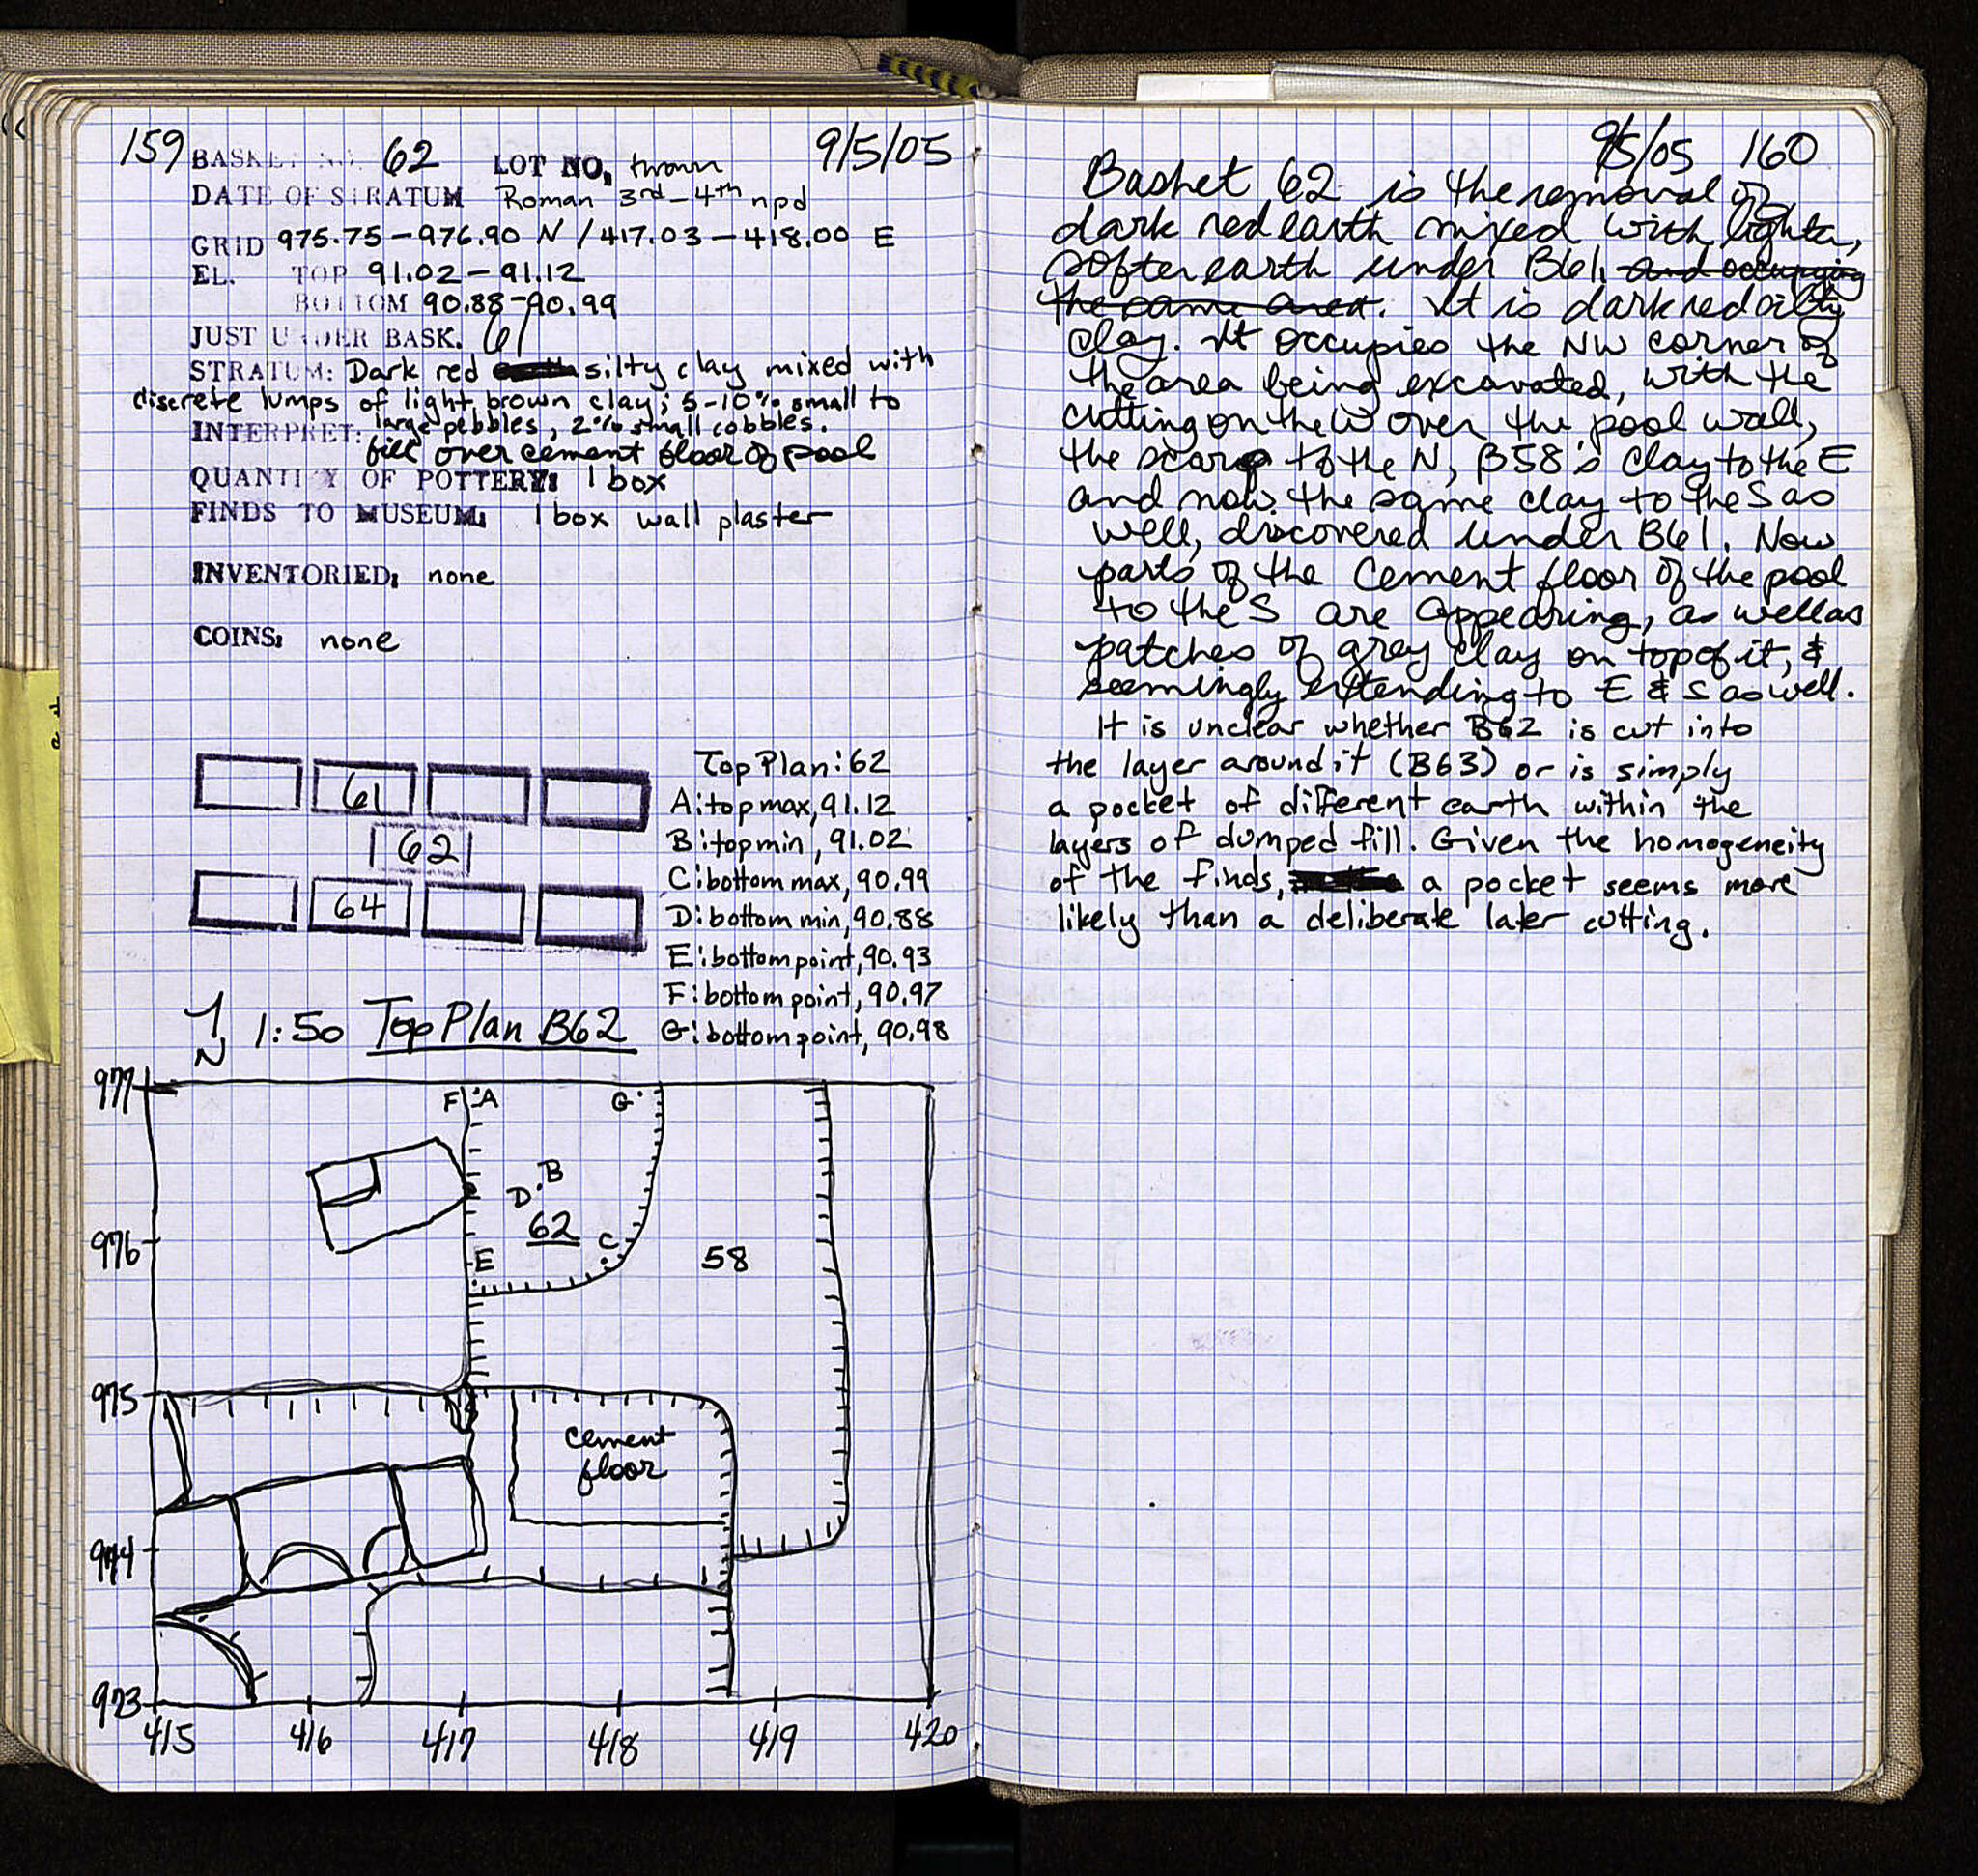 159 BASKET NO. 62 LOT NO. thrown 9/5/05
DATE OF STRATUM Roman 3rd-4th npd
GRID 975.75-976.90 N / 417.03-418.00 E
EL. TOP 91.02-91.12
BOTTOM 90.88-90.99
JUST UNDER BASK. 61
STRATUM: Dark red silty clay mixed with
discrete lumps of light brown clay; 5-10% small to
large pebbles, 2% small cobbles.
INTERPRET: fill over cement floor of pool
QUANTITY OF POTTERY: 1 box
FINDS TO MUSEUM: 1 box wall plaster
INVENTORIED: none
COINS: none
61
62
64
Top Plan: 62
A: top max, 91.12
B: top min, 91.02
C: bottom max, 90.99
D: bottom min, 90.88
E: bottom point, 90.93
F: bottom point, 90.97
G: bottom point, 90.98
N 1:50 Top Plan B62
977
976
975
974
973
F A G
B
D
62
C
E
58
cement
floor
415 416 417 418 419 420
9/5/05 160
Basket 62 is the removal of
dark red earth mixed with lighter,
softer earth under B61, and occupying
the same area. It is dark red silty
clay. It occupies the NW corner of
the area being excavated, with the
cutting on the W over the pool wall,
the scarp to the N, B58's clay to the E
and now the same clay to the S as
well, discovered under B61. Now
parts of the cement floor of the pool
to the S are appearing, as well as
patches of gray clay on top of it, &
seemingly extending to E & S as well.
It is unclear whether B62 is cut into
the layer around it (B63) or is simply
a pocket of different earth within the
layers of dumped fill. Given the homogeneity
of the finds, a pocket seems more
likely than a deliberate later cutting.